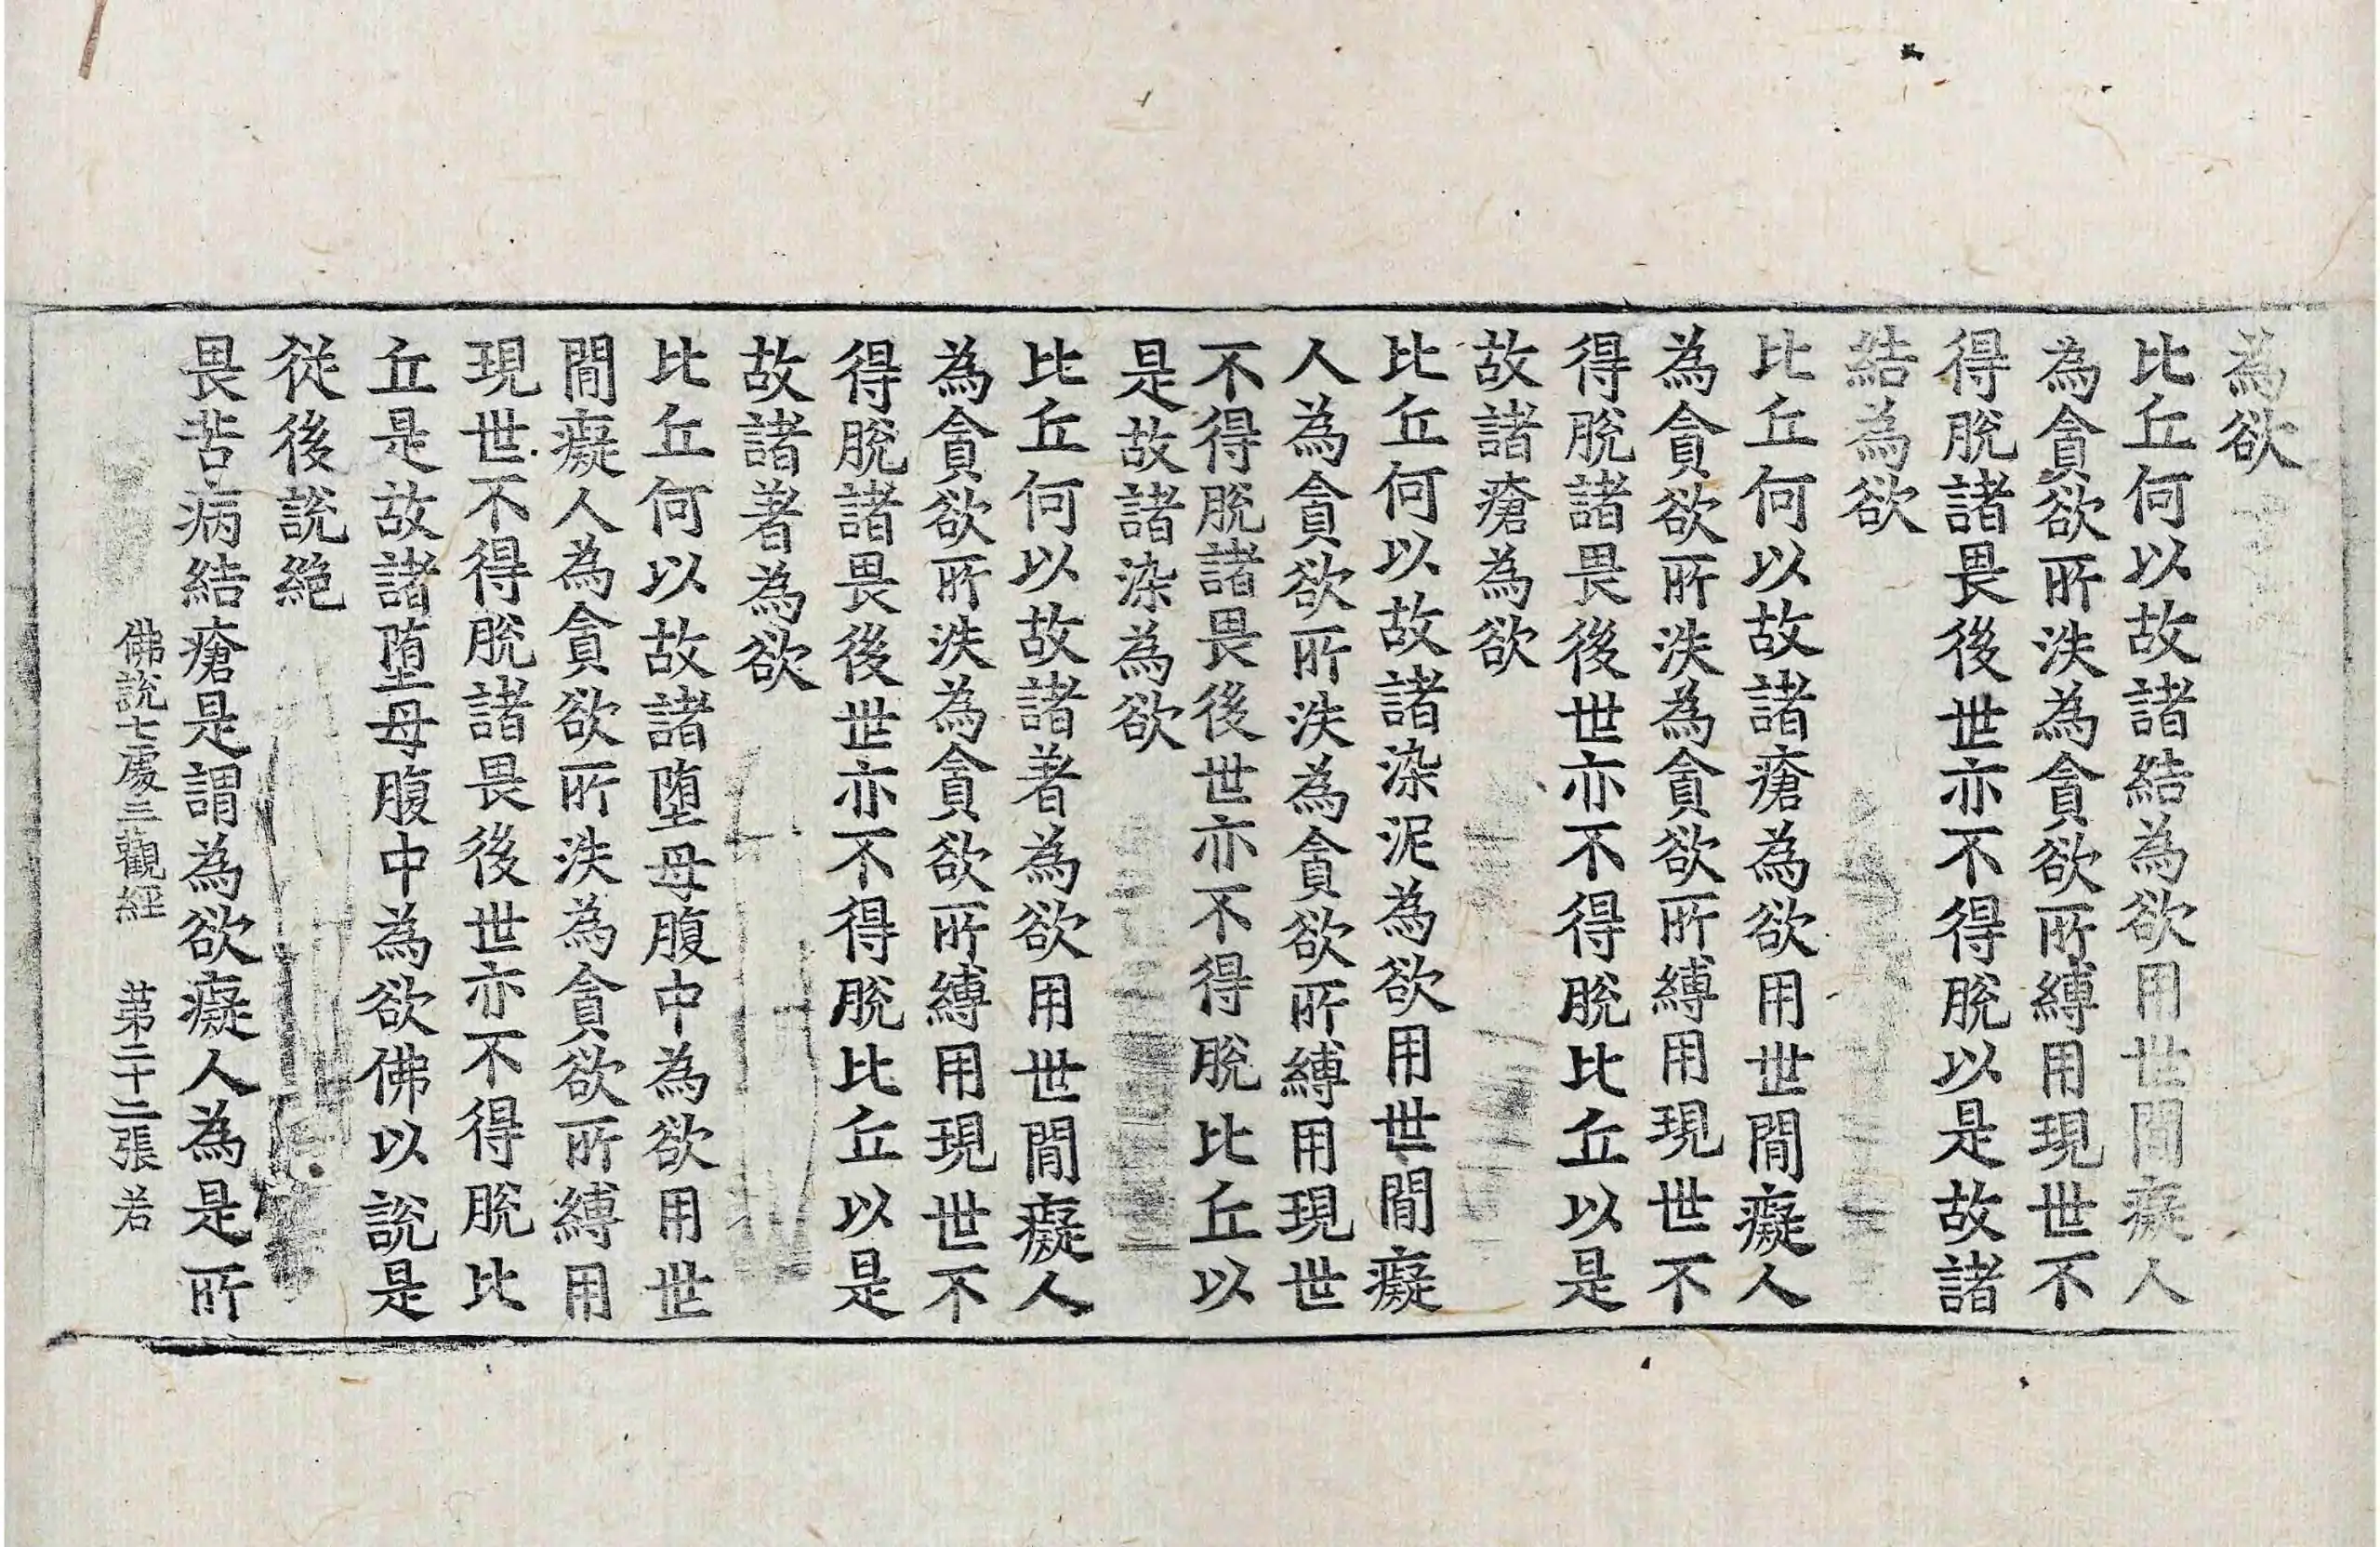 為欲
比丘何以故諸結為欲用世閒癡人
為貪欲所泆為貪欲所縛用現世不
得脫諸畏後世亦不得脫以是故諸
結為欲
比丘何以故諸瘡為欲用世閒癡人
為貪欲所泆為貪欲所縛用現世不
得脫諸畏後世亦不得脫比丘以是
故諸瘡為欲
比丘何以故諸染泥為欲用世閒癡
人為貪欲所泆為貪欲所縛用現世
不得脫諸畏後世亦不得脫比丘以
是故諸染為欲
比丘何以故諸著為欲用世閒癡人
為貪欲所泆為貪欲所縛用現世不
得脫諸畏後世亦不得脫比丘以是
故諸著為欲
比丘何以故諸墮母腹中為欲用世
閒癡人為貪欲所泆為貪欲所縛用
現世不得脫諸畏後世亦不得脫比
丘是故諸墮母腹中為欲佛以說是
從後說絕
畏苦病結瘡是謂為欲癡人為是所
佛說七處三觀經 苐二十二張 若